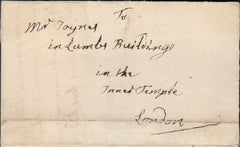 To
Mr Joynes
in Lambs Buildings
in the
Inner Temple
London